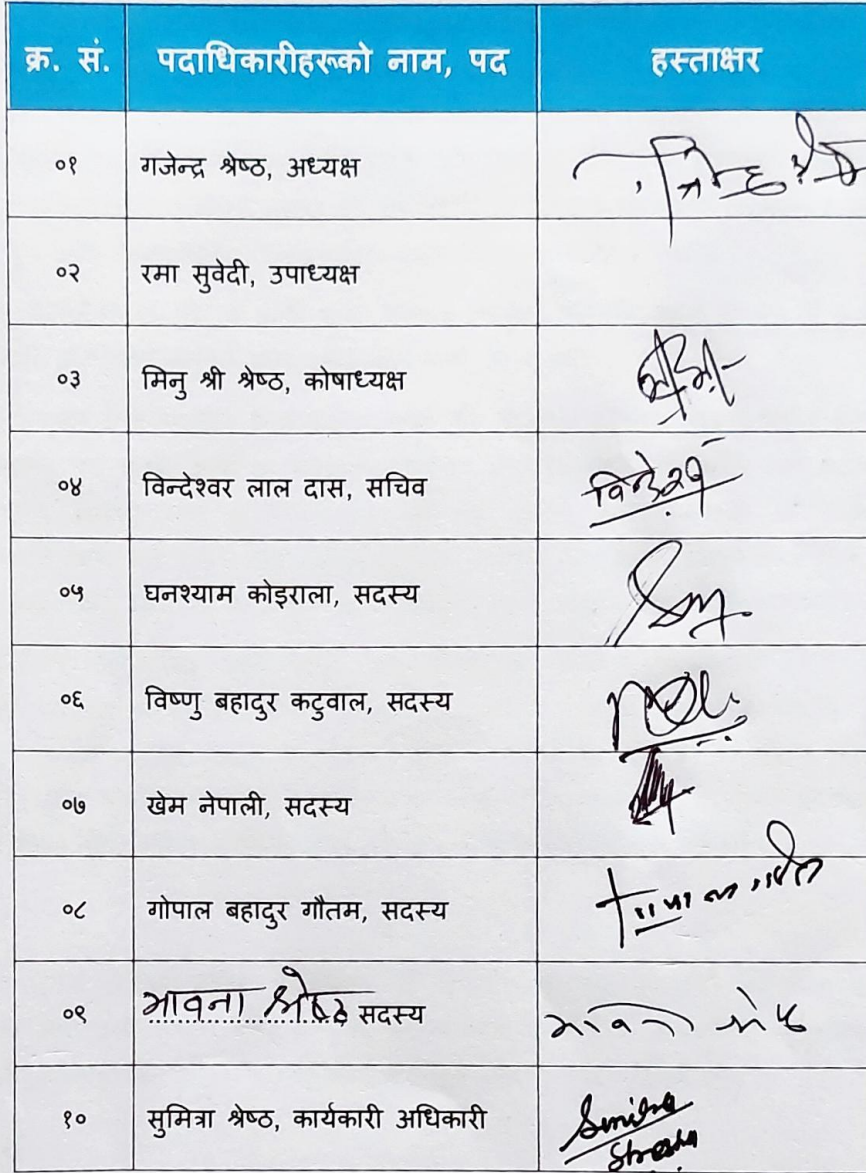 क्र. सं. पदाधिकारीहरूको नाम, पद हस्ताक्षर
०१ गजेन्द्र श्रेष्ठ, अध्यक्ष
०२ रमा सुवेदी, उपाध्यक्ष
०३ मिनु श्री श्रेष्ठ, कोषाध्यक्ष
०४ विन्देश्वर लाल दास, सचिव
०५ घनश्याम कोइराला, सदस्य
०६ विष्णु बहादुर कटुवाल, सदस्य
०७ खेम नेपाली, सदस्य
०८ गोपाल बहादुर गौतम, सदस्य
०९ भावना श्रेष्ठ सदस्य
१० सुमित्रा श्रेष्ठ, कार्यकारी अधिकारी